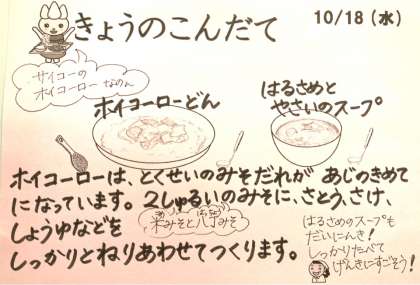 きょうのこんだて
10/18(水)
サイコーの
ホイコーローなのん
ホイコーローどん
はるさめと
やさいのスープ
ホイコーローは、とくせいのみそだれが あじのきめて
になっています。2しゅるいのみそに、さとう、さけ、
しょうゆなどを
米みそと八丁みそ
しっかりとねりあわせてつくります。
はるさめのスープも
だいにんき!
しっかりたべて
げんきにすごそう!